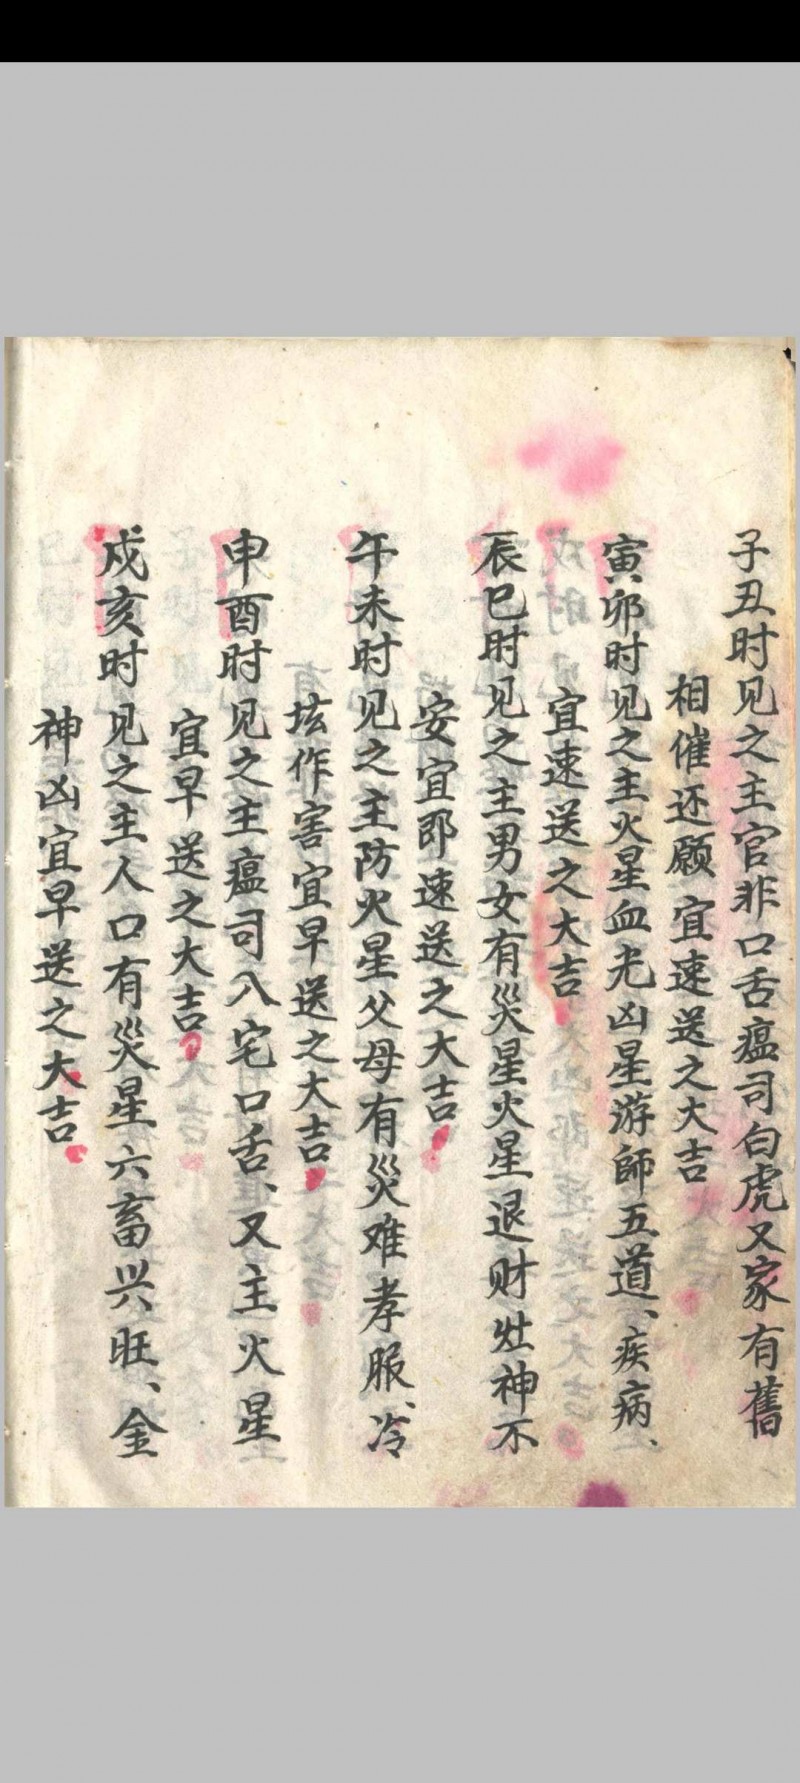 子丑时见之主官非口舌瘟司白虎又家有舊
相催还愿宜速送之大吉
寅卯时见之主火星血光凶星游師五道、疾病、
宜速送之大吉
辰巳时见之主男女有災星火星退财灶神不
安宜即速送之大吉
午未时见之主防火星父母有災难孝服、冷
坛作害宜早送之大吉
申酉时见之主瘟司入宅口舌、又主火星
宜早送之大吉
戍亥时见之主人口有災星六畜兴旺、金
神凶宜早送之大吉